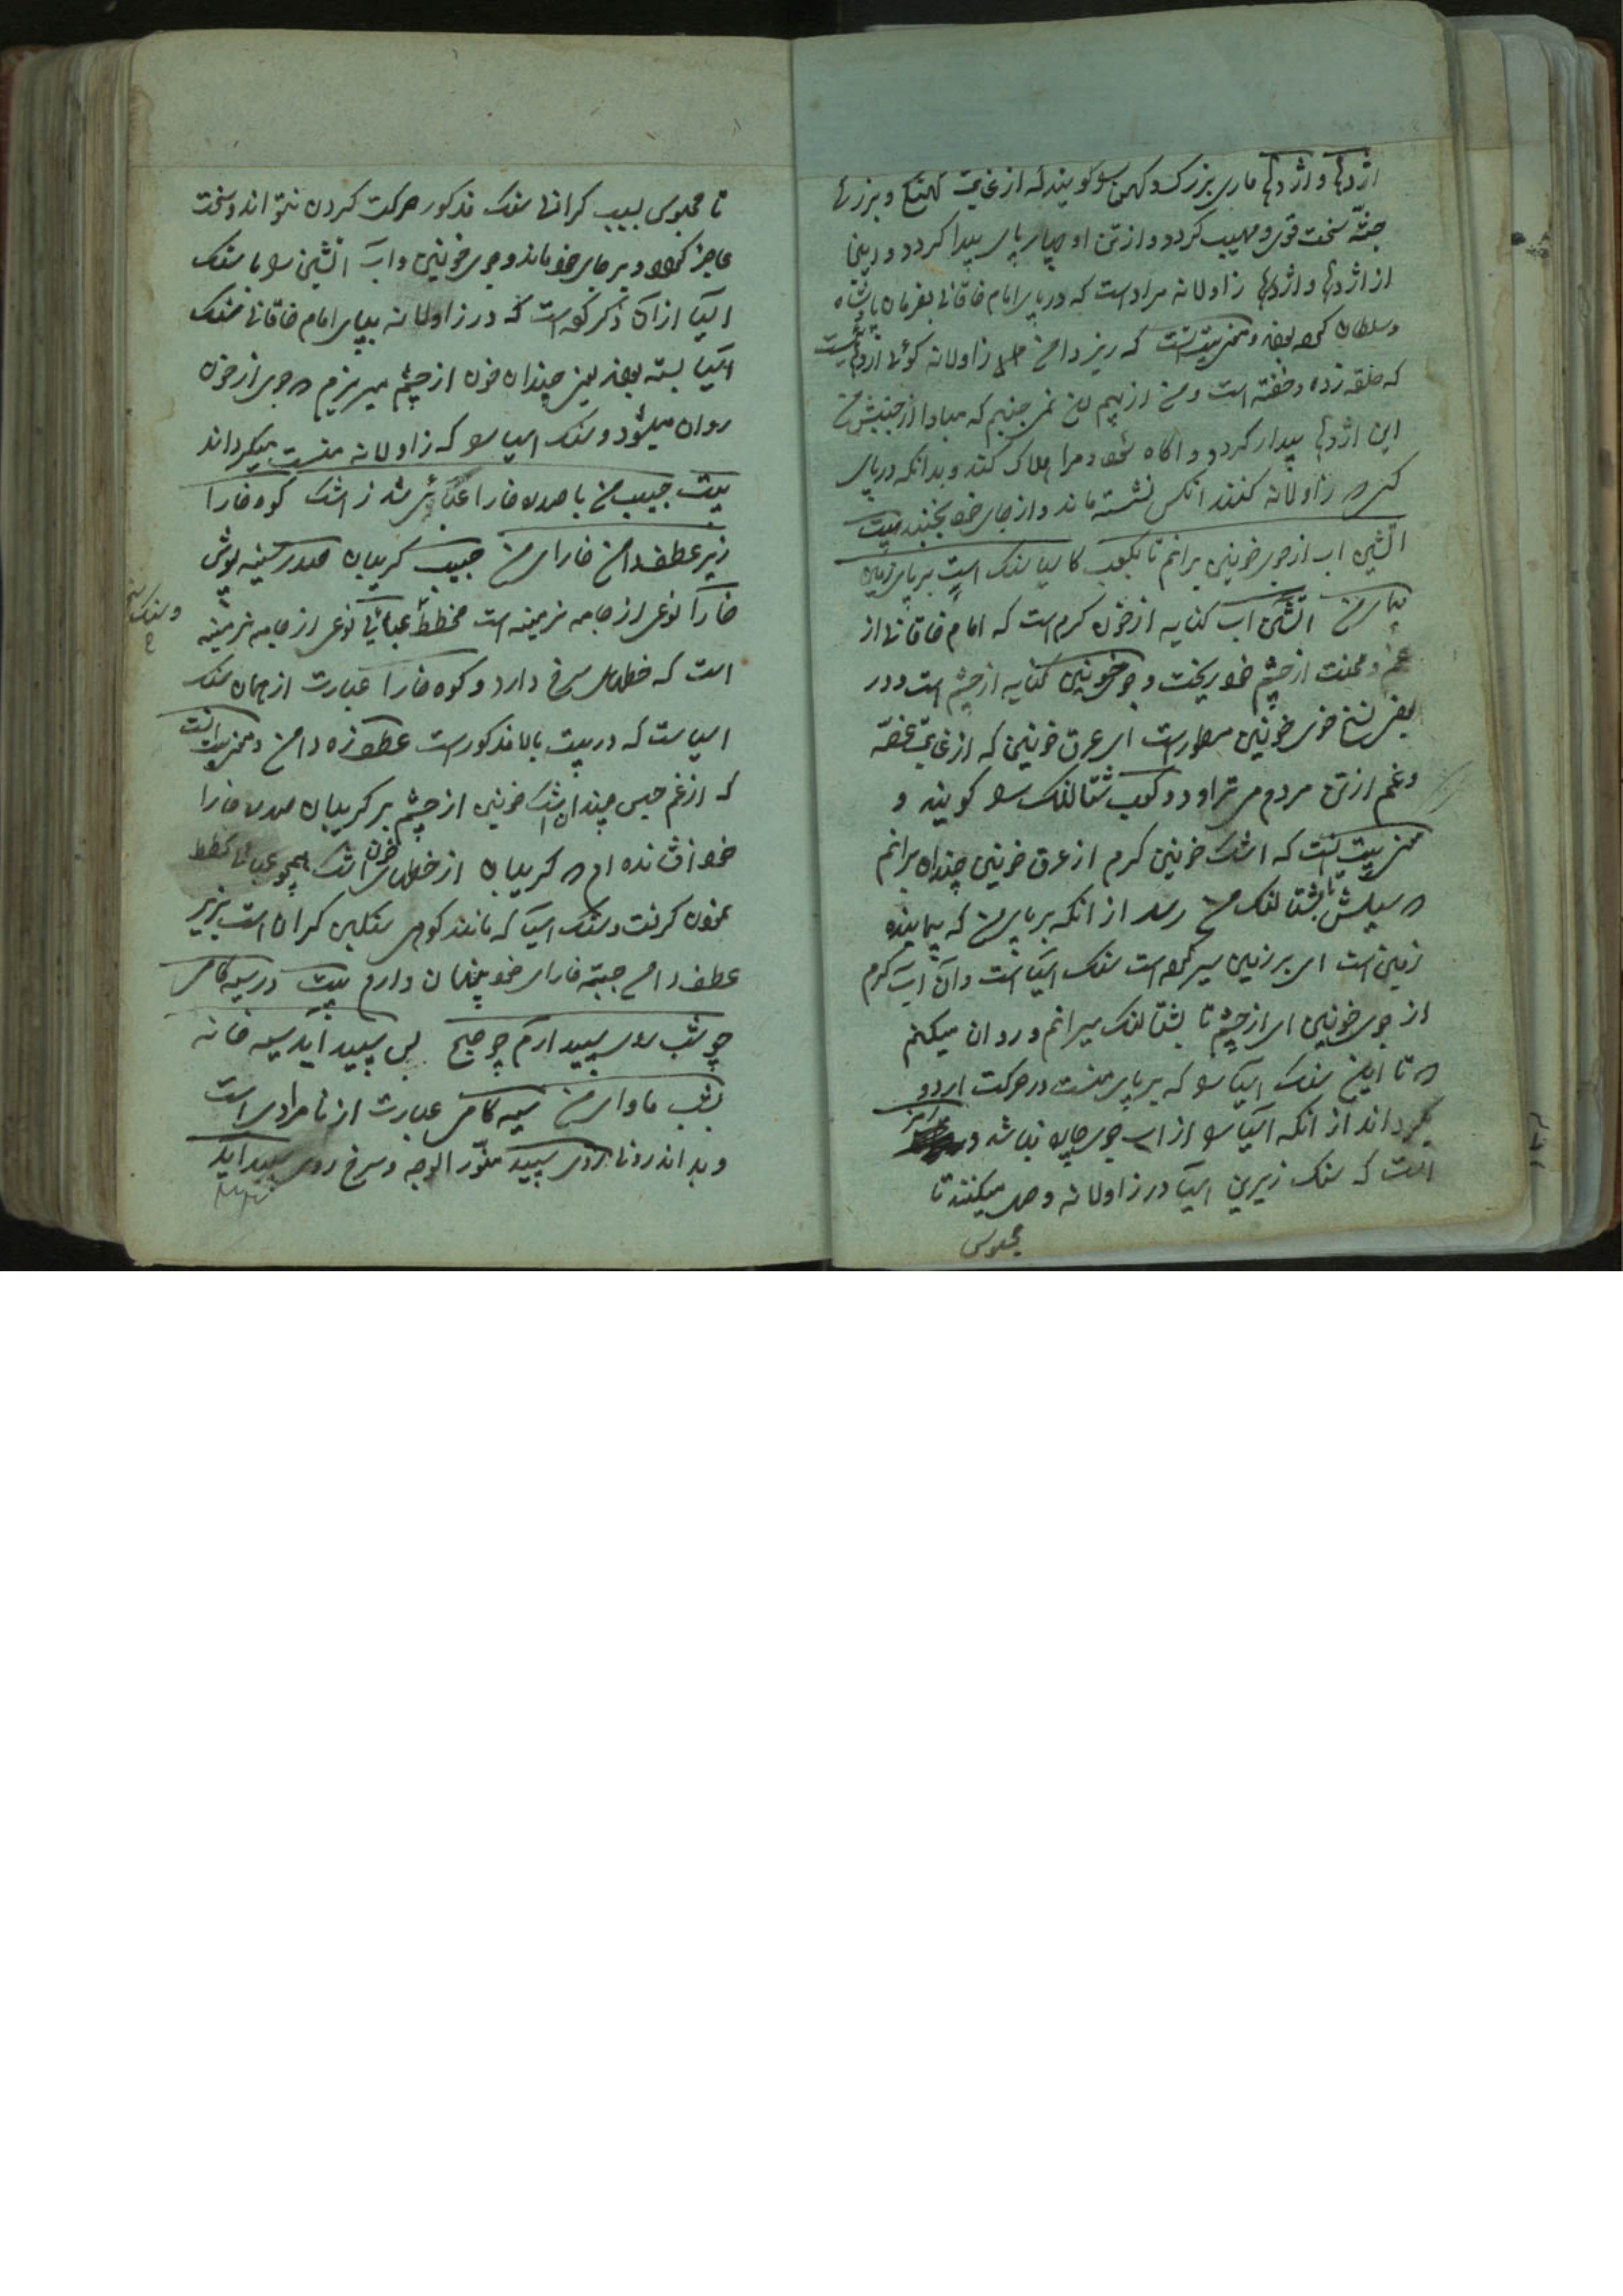 اژدها و اژدها ماری بزرگ و کهن را گویند که از غایت کهنگی و بزرگی
جثه سخت قوی و مهیب گردد و از تن او چهار پای پیدا گردد و اینجا
از اژدها و اژدها زاولانه مرادست که در پای امام خاقانی بفرمان پادشاه
و سلطان کرده بودند و معنی بیت آنست که زیر دامن من زاولانه گوئی اژدهائیست
که حلقه زده و خفته است و من از بیم نمی جنبم که مبادا از جنبش من
این اژدها بیدار گردد و آگاه شود و مرا هلاک کند و بدانکه در پای
کسی را زاولانه کنند آنکس نشسته ماند و از جای خود نجنبد بیت
آتشین آب از جوی خونین برانم تا بکعب کاسیا سنگ است بر پای زمین
پیمای من آتشین آب کنایه از خون گرم است که امام خاقانی از
غم و محنت از چشم خود ریخت و جوی خونین کنایه از چشم است و در
بعض نسخ خوی خونین مسطورست ای عرق خونین که از غایت غصه
و غم از تن مردم می تراود و کعب شتالنگ را گویند و
معنی بیت آنست که اشک خونین گرم از عرق خونین چندان برانم
که سیلش تا بشتالنگ من رسد از آنکه بر پای من که پیماینده
زمین است ای بر زمین سیر کرده است سنگ آسیا است و آن آب گرم
از جوی خونین ای از چشم تا بشتالنگ میرانم و روان میکنم
که تا این سنگ آسیا را که بر پای منست در حرکت آرد و
بگرداند از آنکه آسیا را از آب جوی چاره نباشد و
آنست که سنگ زیرین آسیا در زاولانه وصل میکنند تا
محبوس
تا محبوس بسبب گرانی سنگ مذکور حرکت کردن نتواند و سخت
عاجز گردد و بر جای خود ماند و جوی خونین و آب آتشین را با سنگ
آسیا از آن ذکر کرده است که در زاولانه بپای امام خاقانی سنگ
آسیا بسته بودند یعنی چندان خون از چشم میریزم که جوی از خون
روان میشود و سنگ آسیا را که زاولانه منست میگرداند
بیت جیب من با صدره خارا عتابی شد ز اشک کوه خارا
زیر عطف دامن خارای من جیب گریبان صدره سینه پوش
خارا نوعی از جامه نرمینه است مخطط عتابی نوعی از جامه نرمینه
و سنگ سخت
است که خطهای سرخ دارد و کوه خارا عبارت از همان سنگ
آسیاست که در بیت بالا مذکورست عطف زه دامن و معنی بیت آنست
که از غم حبس چندان اشک خونین از چشم بر گریبان صدره خارا
خود افشانده ام که گریبان از خطهای خون اشک همچو عتابی مخطط
بخون گرفت و سنگ آسیا که مانند کوهی سنگین گران است بزیر
عطف دامن جبه خارای خود پنهان دارم بیت در سیه کامی
چو شب روی سپید آرم چو صبح پس سپید آید سیه خانه
بشب ماوای من سیه کامی عبارت از نامرادی است
و بد اندرونی روی سپید منور الوجه و سرخ روی سپید آید